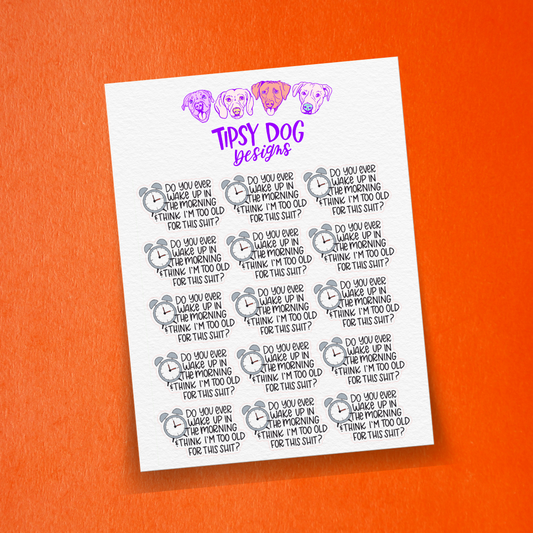 TIPSY DOG
Designs
DO YOU EVER
WAKE UP IN
THE MORNING
& THINK I'M TOO OLD
FOR THIS SHIT?
DO YOU EVER
WAKE UP IN
THE MORNING
& THINK I'M TOO OLD
FOR THIS SHIT?
DO YOU EVER
WAKE UP IN
THE MORNING
& THINK I'M TOO OLD
FOR THIS SHIT?
DO YOU EVER
WAKE UP IN
THE MORNING
& THINK I'M TOO OLD
FOR THIS SHIT?
DO YOU EVER
WAKE UP IN
THE MORNING
& THINK I'M TOO OLD
FOR THIS SHIT?
DO YOU EVER
WAKE UP IN
THE MORNING
& THINK I'M TOO OLD
FOR THIS SHIT?
DO YOU EVER
WAKE UP IN
THE MORNING
& THINK I'M TOO OLD
FOR THIS SHIT?
DO YOU EVER
WAKE UP IN
THE MORNING
& THINK I'M TOO OLD
FOR THIS SHIT?
DO YOU EVER
WAKE UP IN
THE MORNING
& THINK I'M TOO OLD
FOR THIS SHIT?
DO YOU EVER
WAKE UP IN
THE MORNING
& THINK I'M TOO OLD
FOR THIS SHIT?
DO YOU EVER
WAKE UP IN
THE MORNING
& THINK I'M TOO OLD
FOR THIS SHIT?
DO YOU EVER
WAKE UP IN
THE MORNING
& THINK I'M TOO OLD
FOR THIS SHIT?
DO YOU EVER
WAKE UP IN
THE MORNING
& THINK I'M TOO OLD
FOR THIS SHIT?
DO YOU EVER
WAKE UP IN
THE MORNING
& THINK I'M TOO OLD
FOR THIS SHIT?
DO YOU EVER
WAKE UP IN
THE MORNING
& THINK I'M TOO OLD
FOR THIS SHIT?